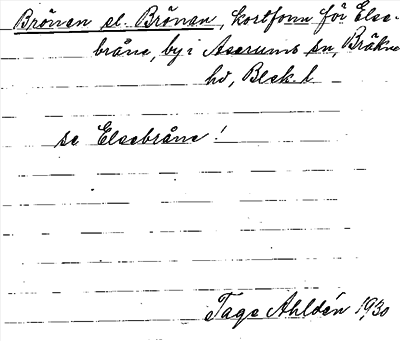 Brönen el. Brönan, kortform för Else-
bråne, by i Asarums sn, Bräkne
hd, Blek. l.
se Elsebråne!
Tage Ahldén 1930